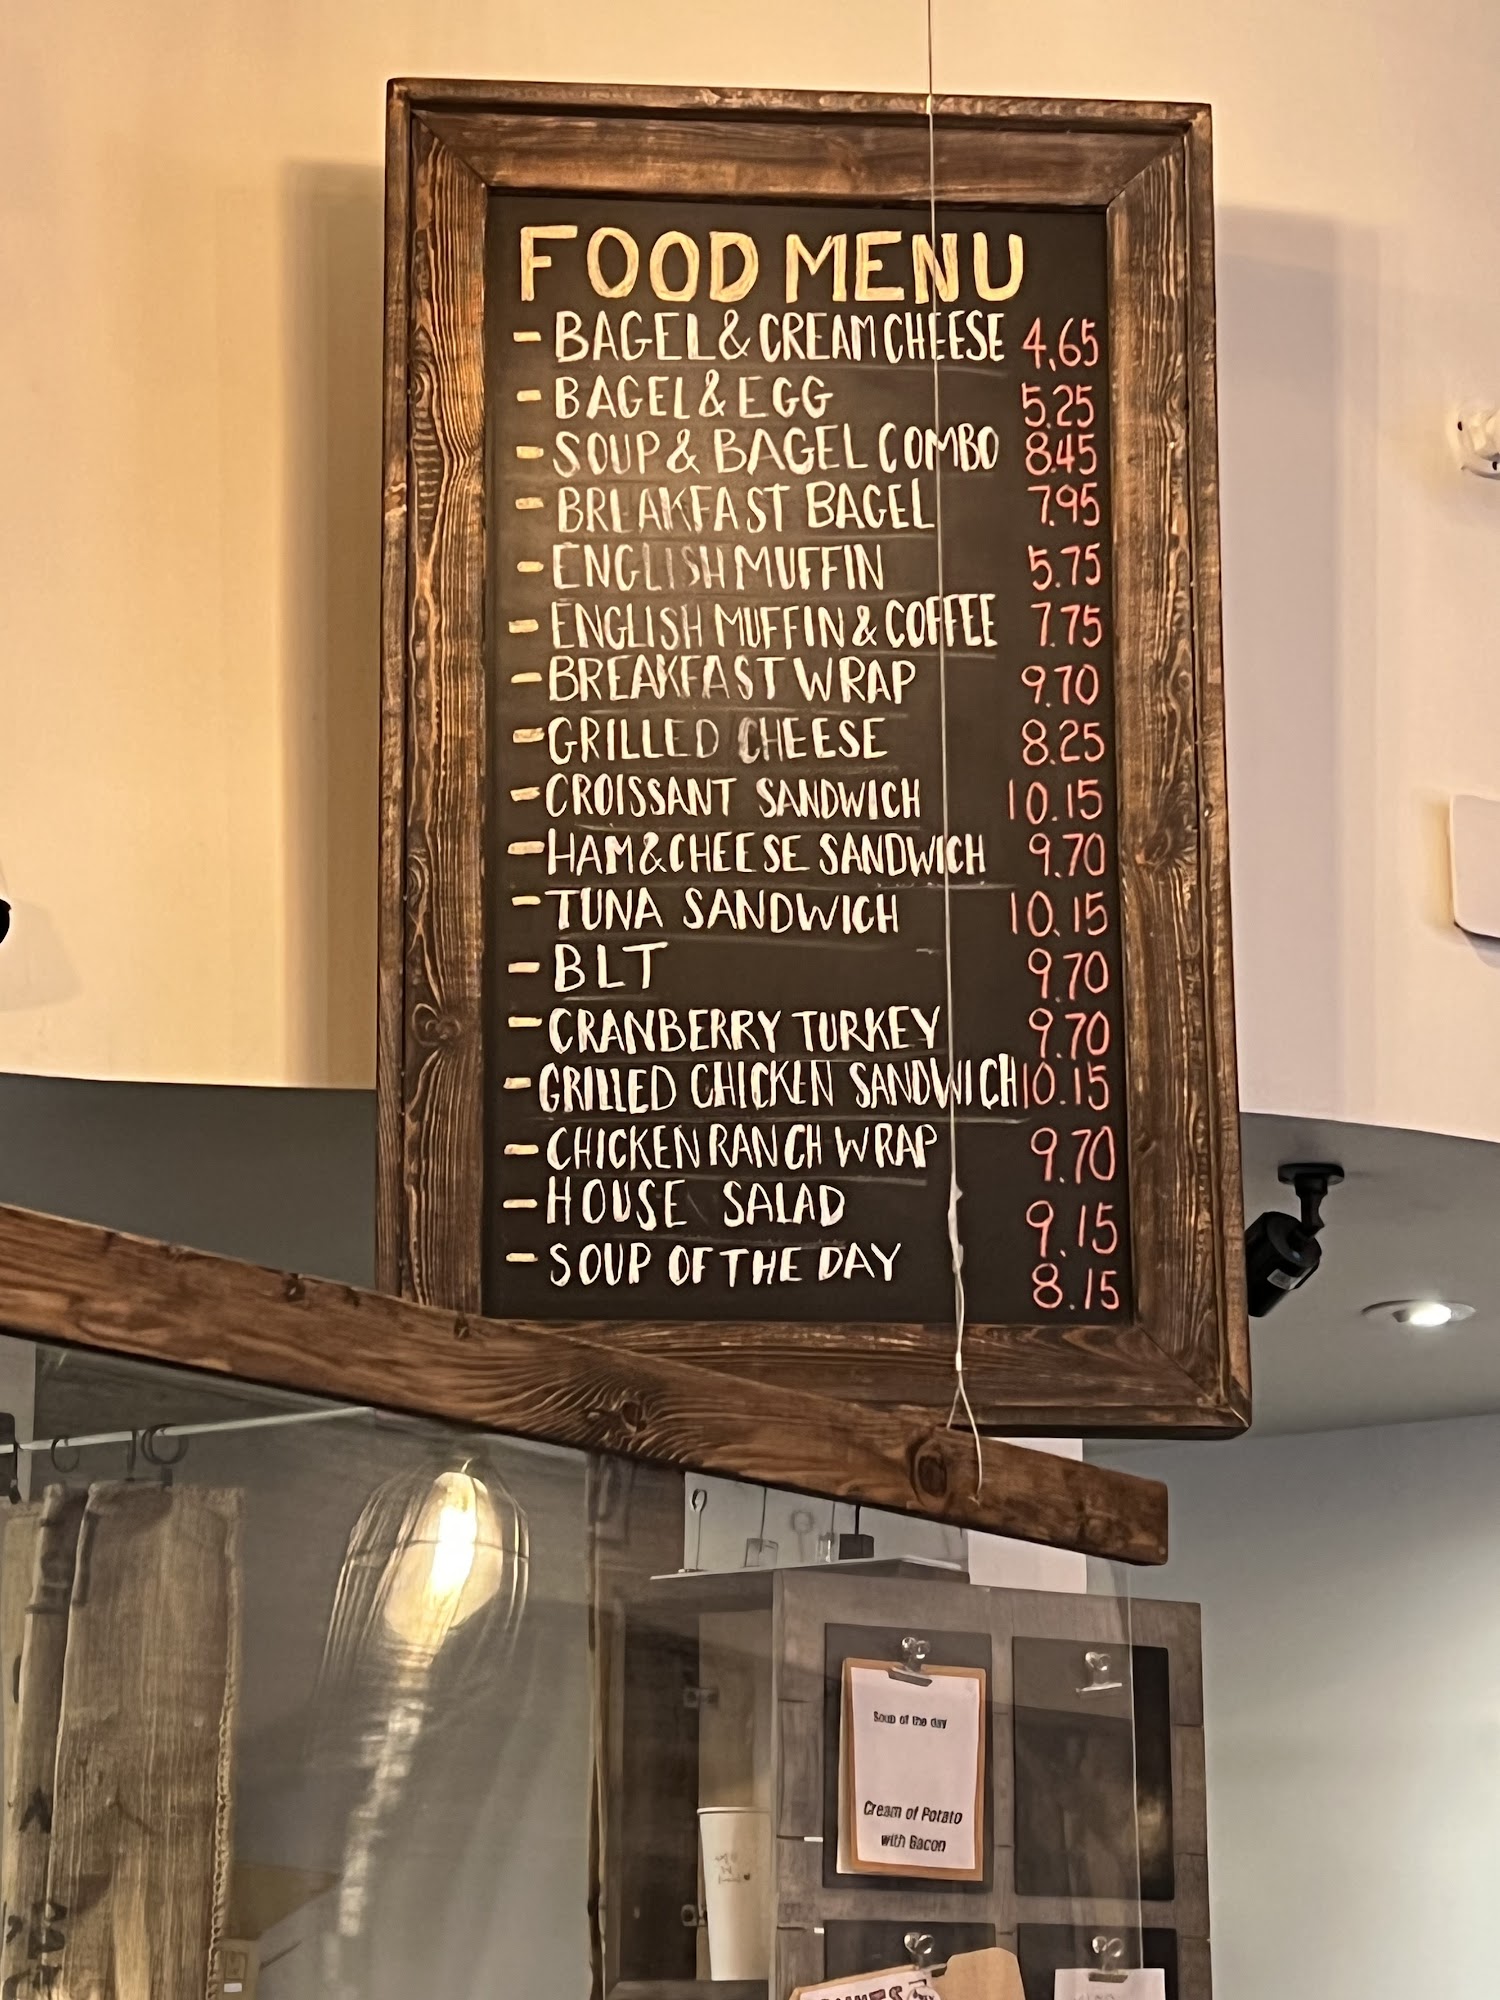 FOOD MENU
- BAGEL & CREAM CHEESE 4.65
- BAGEL & EGG 5.25
- SOUP & BAGEL COMBO 8.45
- BREAKFAST BAGEL 7.95
- ENGLISH MUFFIN 5.75
- ENGLISH MUFFIN & COFFEE 7.75
- BREAKFAST WRAP 9.70
- GRILLED CHEESE 8.25
- CROISSANT SANDWICH 10.15
- HAM & CHEESE SANDWICH 9.70
- TUNA SANDWICH 10.15
- BLT 9.70
- CRANBERRY TURKEY 9.70
- GRILLED CHICKEN SANDWICH 10.15
- CHICKEN RANCH WRAP 9.70
- HOUSE SALAD 9.15
- SOUP OF THE DAY 8.15
Soup of the day
Cream of Potato
with Bacon